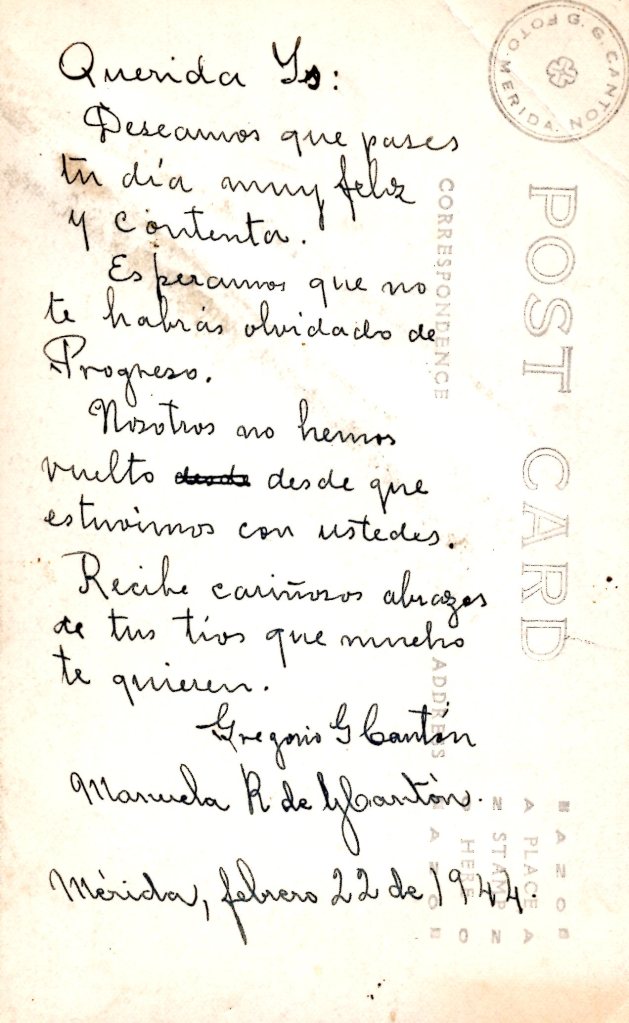 Querida Is:
Deseamos que pases
tu día muy feliz
y contenta.
Esperamos que no
te habrás olvidado de
Progreso.
Nosotros no hemos
vuelto desde desde que
estuvimos con ustedes.
Recibe cariñosos abrazos
de tus tíos que mucho
te quieren.
Gregorio G Cantón
Manuela R de G Cantón.
Mérida, febrero 22 de 1944.
FOTO G. G. CANTON
MERIDA.
POST CARD
CORRESPONDENCE
ADDRESS
PLACE
STAMP
HERE
AZO